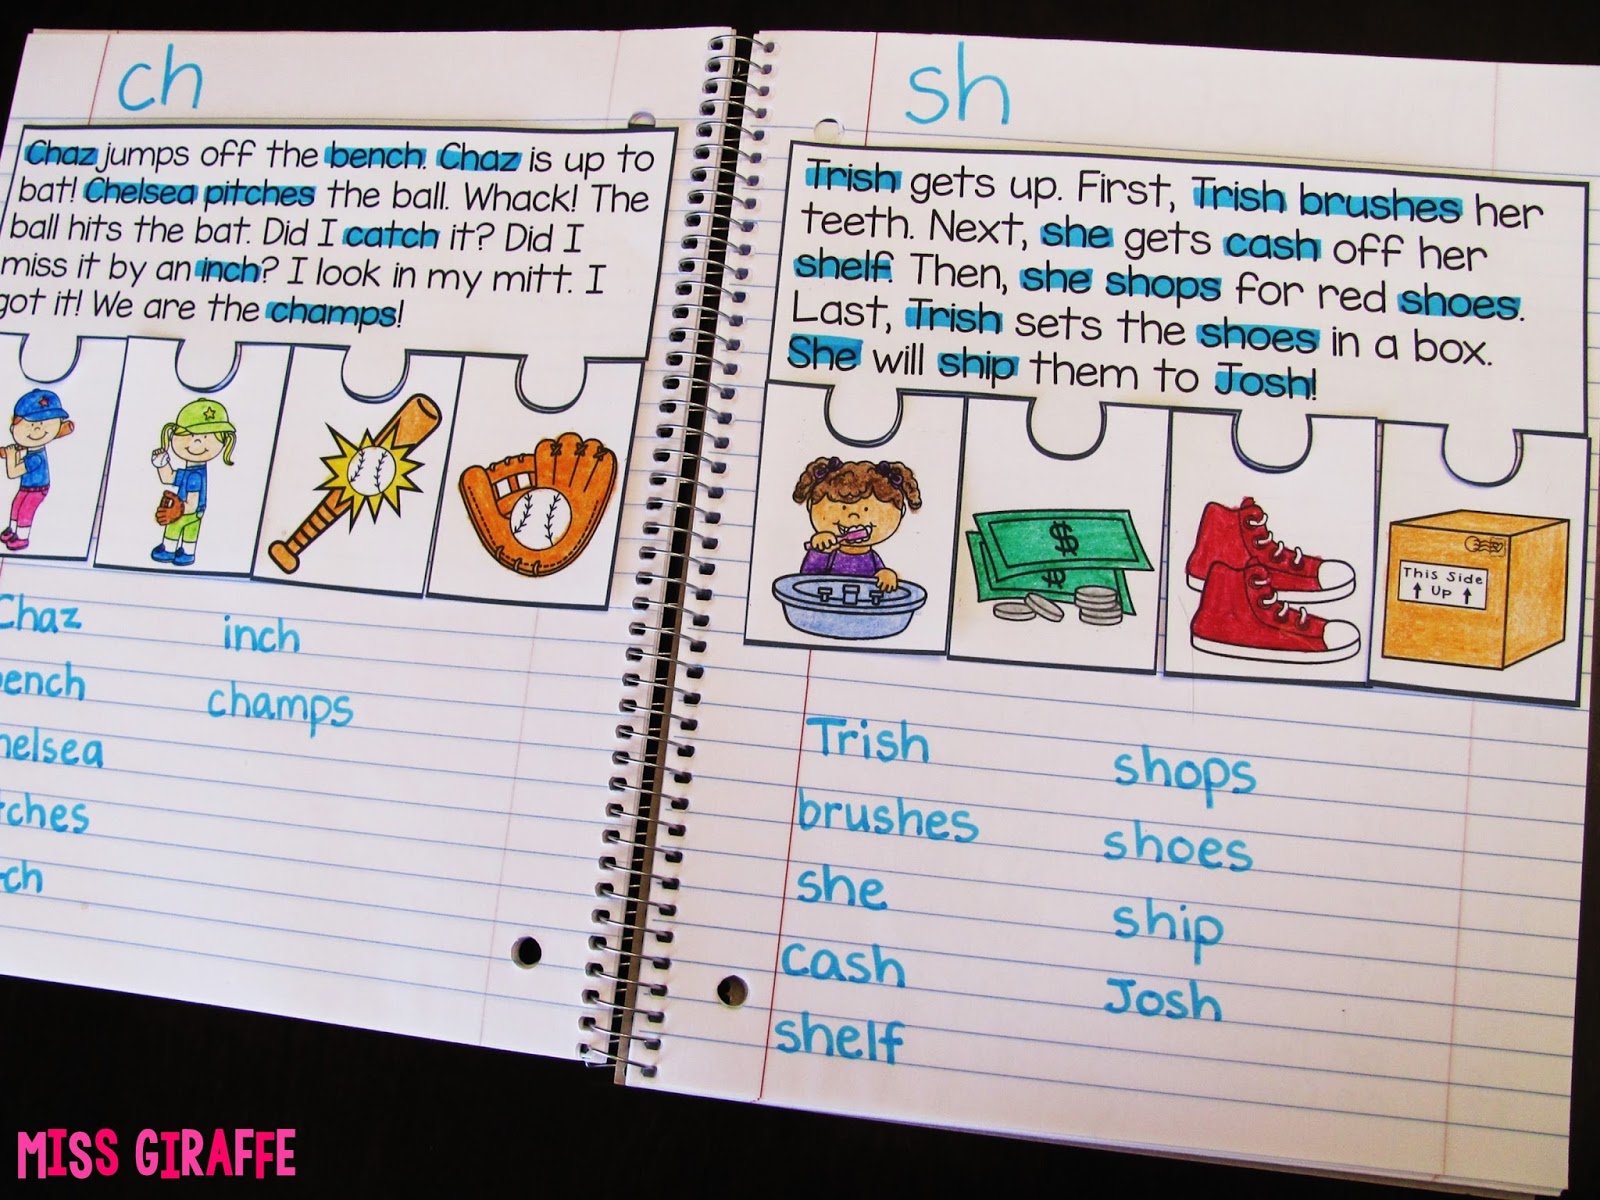 ch
Chaz jumps off the bench. Chaz is up to
bat! Chelsea pitches the ball. Whack! The
ball hits the bat. Did I catch it? Did I
miss it by an inch? I look in my mitt. I
got it! We are the champs!
Chaz
bench
helsea
tches
ch
inch
champs
sh
Trish gets up. First, Trish brushes her
teeth. Next, she gets cash off her
shelf. Then, she shops for red shoes.
Last, Trish sets the shoes in a box.
She will ship them to Josh!
$
$
This Side
Up
Trish
brushes
she
cash
shelf
shops
shoes
ship
Josh
MISS GIRAFFE